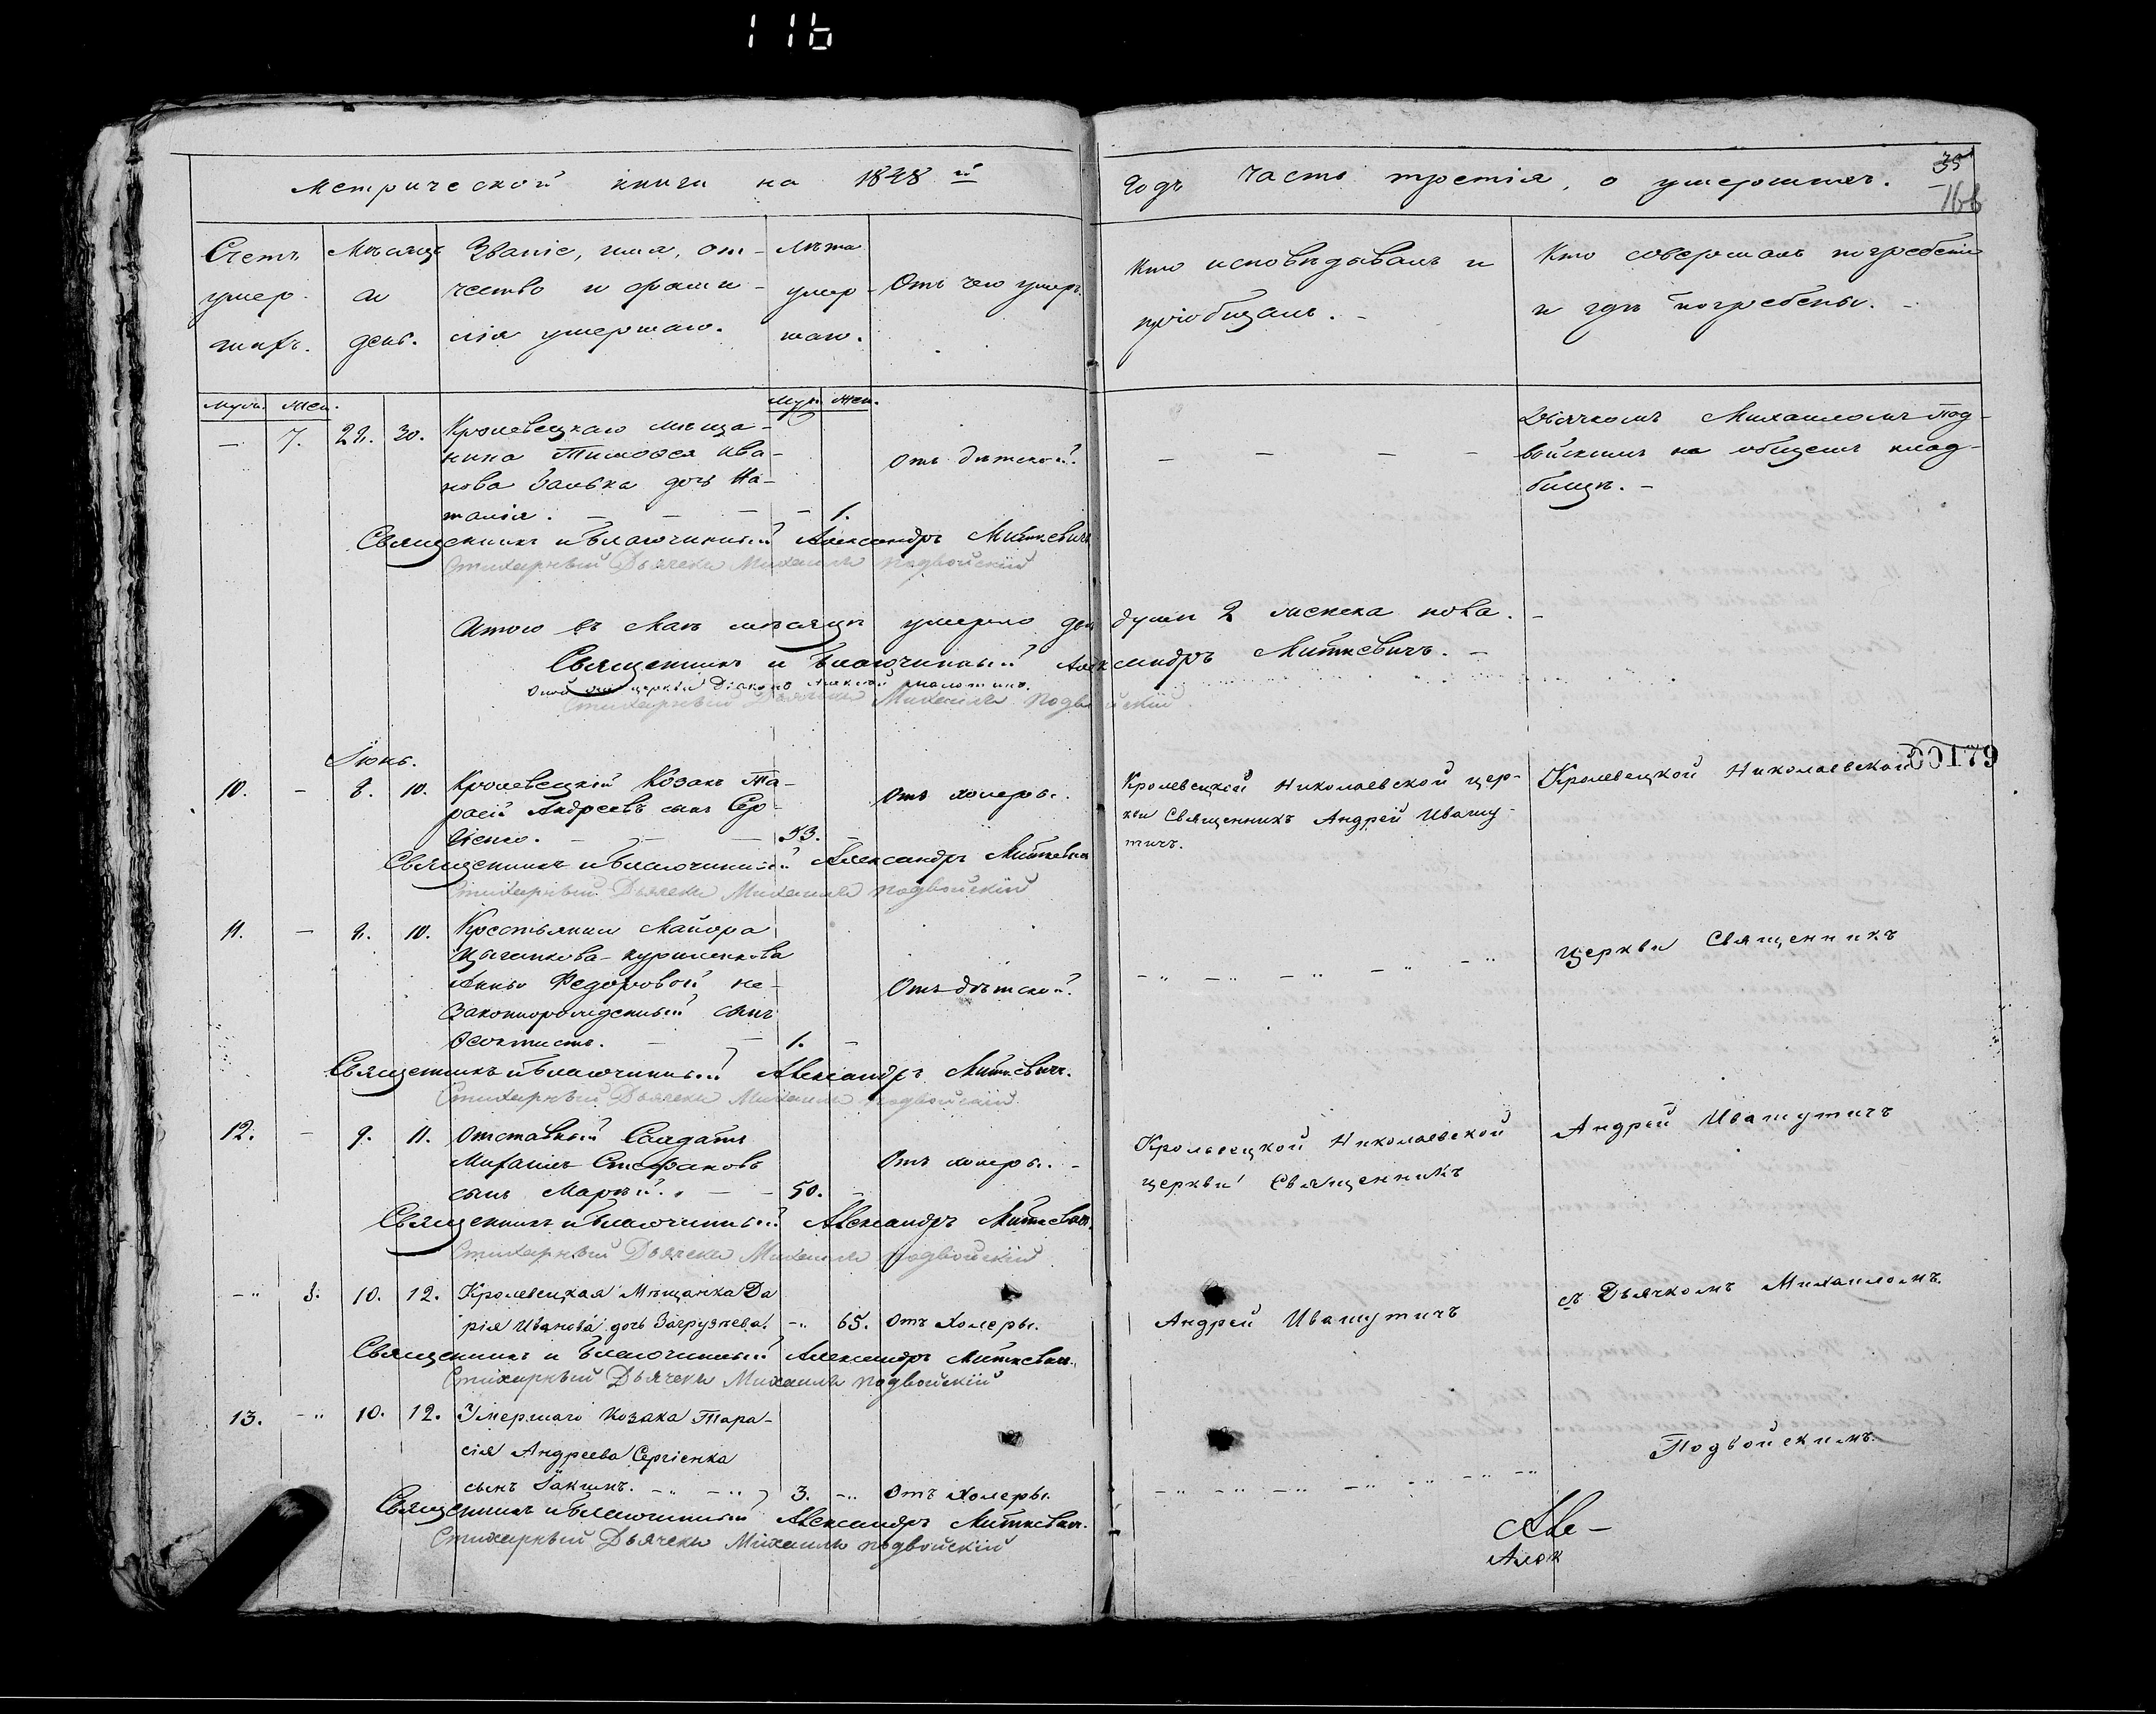 116
Метрической книги на 1848 й
Годъ Часть третія, о умершихъ.
35
166
Счетъ умер- шихъ.
Мѣсяцъ и день.
Званіе, имя, от-
чество и фами-
лія умершаго.
Лѣта умер- шаго.
Отъ чего умеръ.
Кто исповѣдывалъ и
пріобщалъ. -
Кто совершалъ погребеніе
и гдѣ погребены. -
Муж. Жен.
Муж. Жен.
- 7. 28. 30. Кролевецкаго мѣща-
нина Тимофея Ива-
нова Заики дочь На-
талія. - - - - 1.
Отъ дѣтской.
- - - -
Дьячкомъ Михаиломъ Под-
войскимъ на общемъ клад-
бищѣ. -
Священникъ и Благочинный Александръ Миткевичъ
Стихарный Дьячекъ Михаилъ Подвойскій
Итого въ Маѣ мѣсяцѣ умерло две души 2 женска пола. -
Священникъ и Благочинный Александръ Миткевичъ. -
церкви Діаконъ Алексѣй
Стихарный Дьячекъ Михаилъ Подвойскій.
Іюнь.
00179
10. - 8. 10. Кролевецкій Козакъ Та-
расій Андреевъ сынъ Сер-
гіенко. - - - 53. -
Отъ холеры.
Кролевецкой Николаевской цер-
кви Священникъ Андрей Ивашу-
тичъ.
Кролевецкой Николаевской
Священникъ и Благочинный Александръ Миткевичъ
Стихарный Дьячекъ Михаилъ Подвойскій
11. - 8. 10. Крестьянки Маіора
Анны Федоровой не-
законнорожденный сынъ
Феоктистъ. - - 1. -
Отъ дѣтской.
- " - " - " - " - "
Церкви Священникъ
Священникъ и Благочинный Александръ Миткевичъ.
Стихарный Дьячекъ Михаилъ Подвойскій
12. - 9. 11. Отставный Салдатъ
Михаилъ Стефановъ
сынъ - - 50. -
Отъ холеры. -
Кролевецкой Николаевской
церкви Священникъ
Андрей Ивашутичъ
Священникъ и Благочинный Александръ Миткевичъ.
Стихарный Дьячекъ Михаилъ Подвойскій
- " 8. 10. 12. Кролевецкая Мѣщанка Да
рія Иванова дочь - " 65. Отъ Холеры.
Андрей Ивашутичъ
съ Дьячкомъ Михаиломъ
Священникъ и Благочинный Александръ Миткевичъ.
Стихарный Дьячекъ Михаилъ Подвойскій
13. - " 10. 12. Умершаго Козака Тара-
сія Андреева Сергіенка
сынъ Іакимъ. - " - " 3. - " Отъ Холеры.
- " - " - " - " - " - " - " - "
Подвойскимъ.
Священникъ и Благочинный Александръ Миткевичъ.
Стихарный Дьячекъ Михаилъ Подвойскій
Але-
Алек